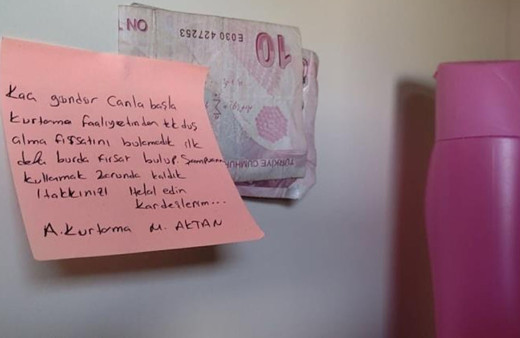 Kaç gündür Canla başla
kurtarma faaliyetinden tek duş
alma fırsatını bulamadık ilk
defa burda fırsat bulup. Şampuan
kullanmak zorunda kaldık
Hakkınızı Helal edin
kardeşlerim...
A.Kurtarma M. AKTAN
E030 427253
10
TÜRKİYE CUMHU
ON